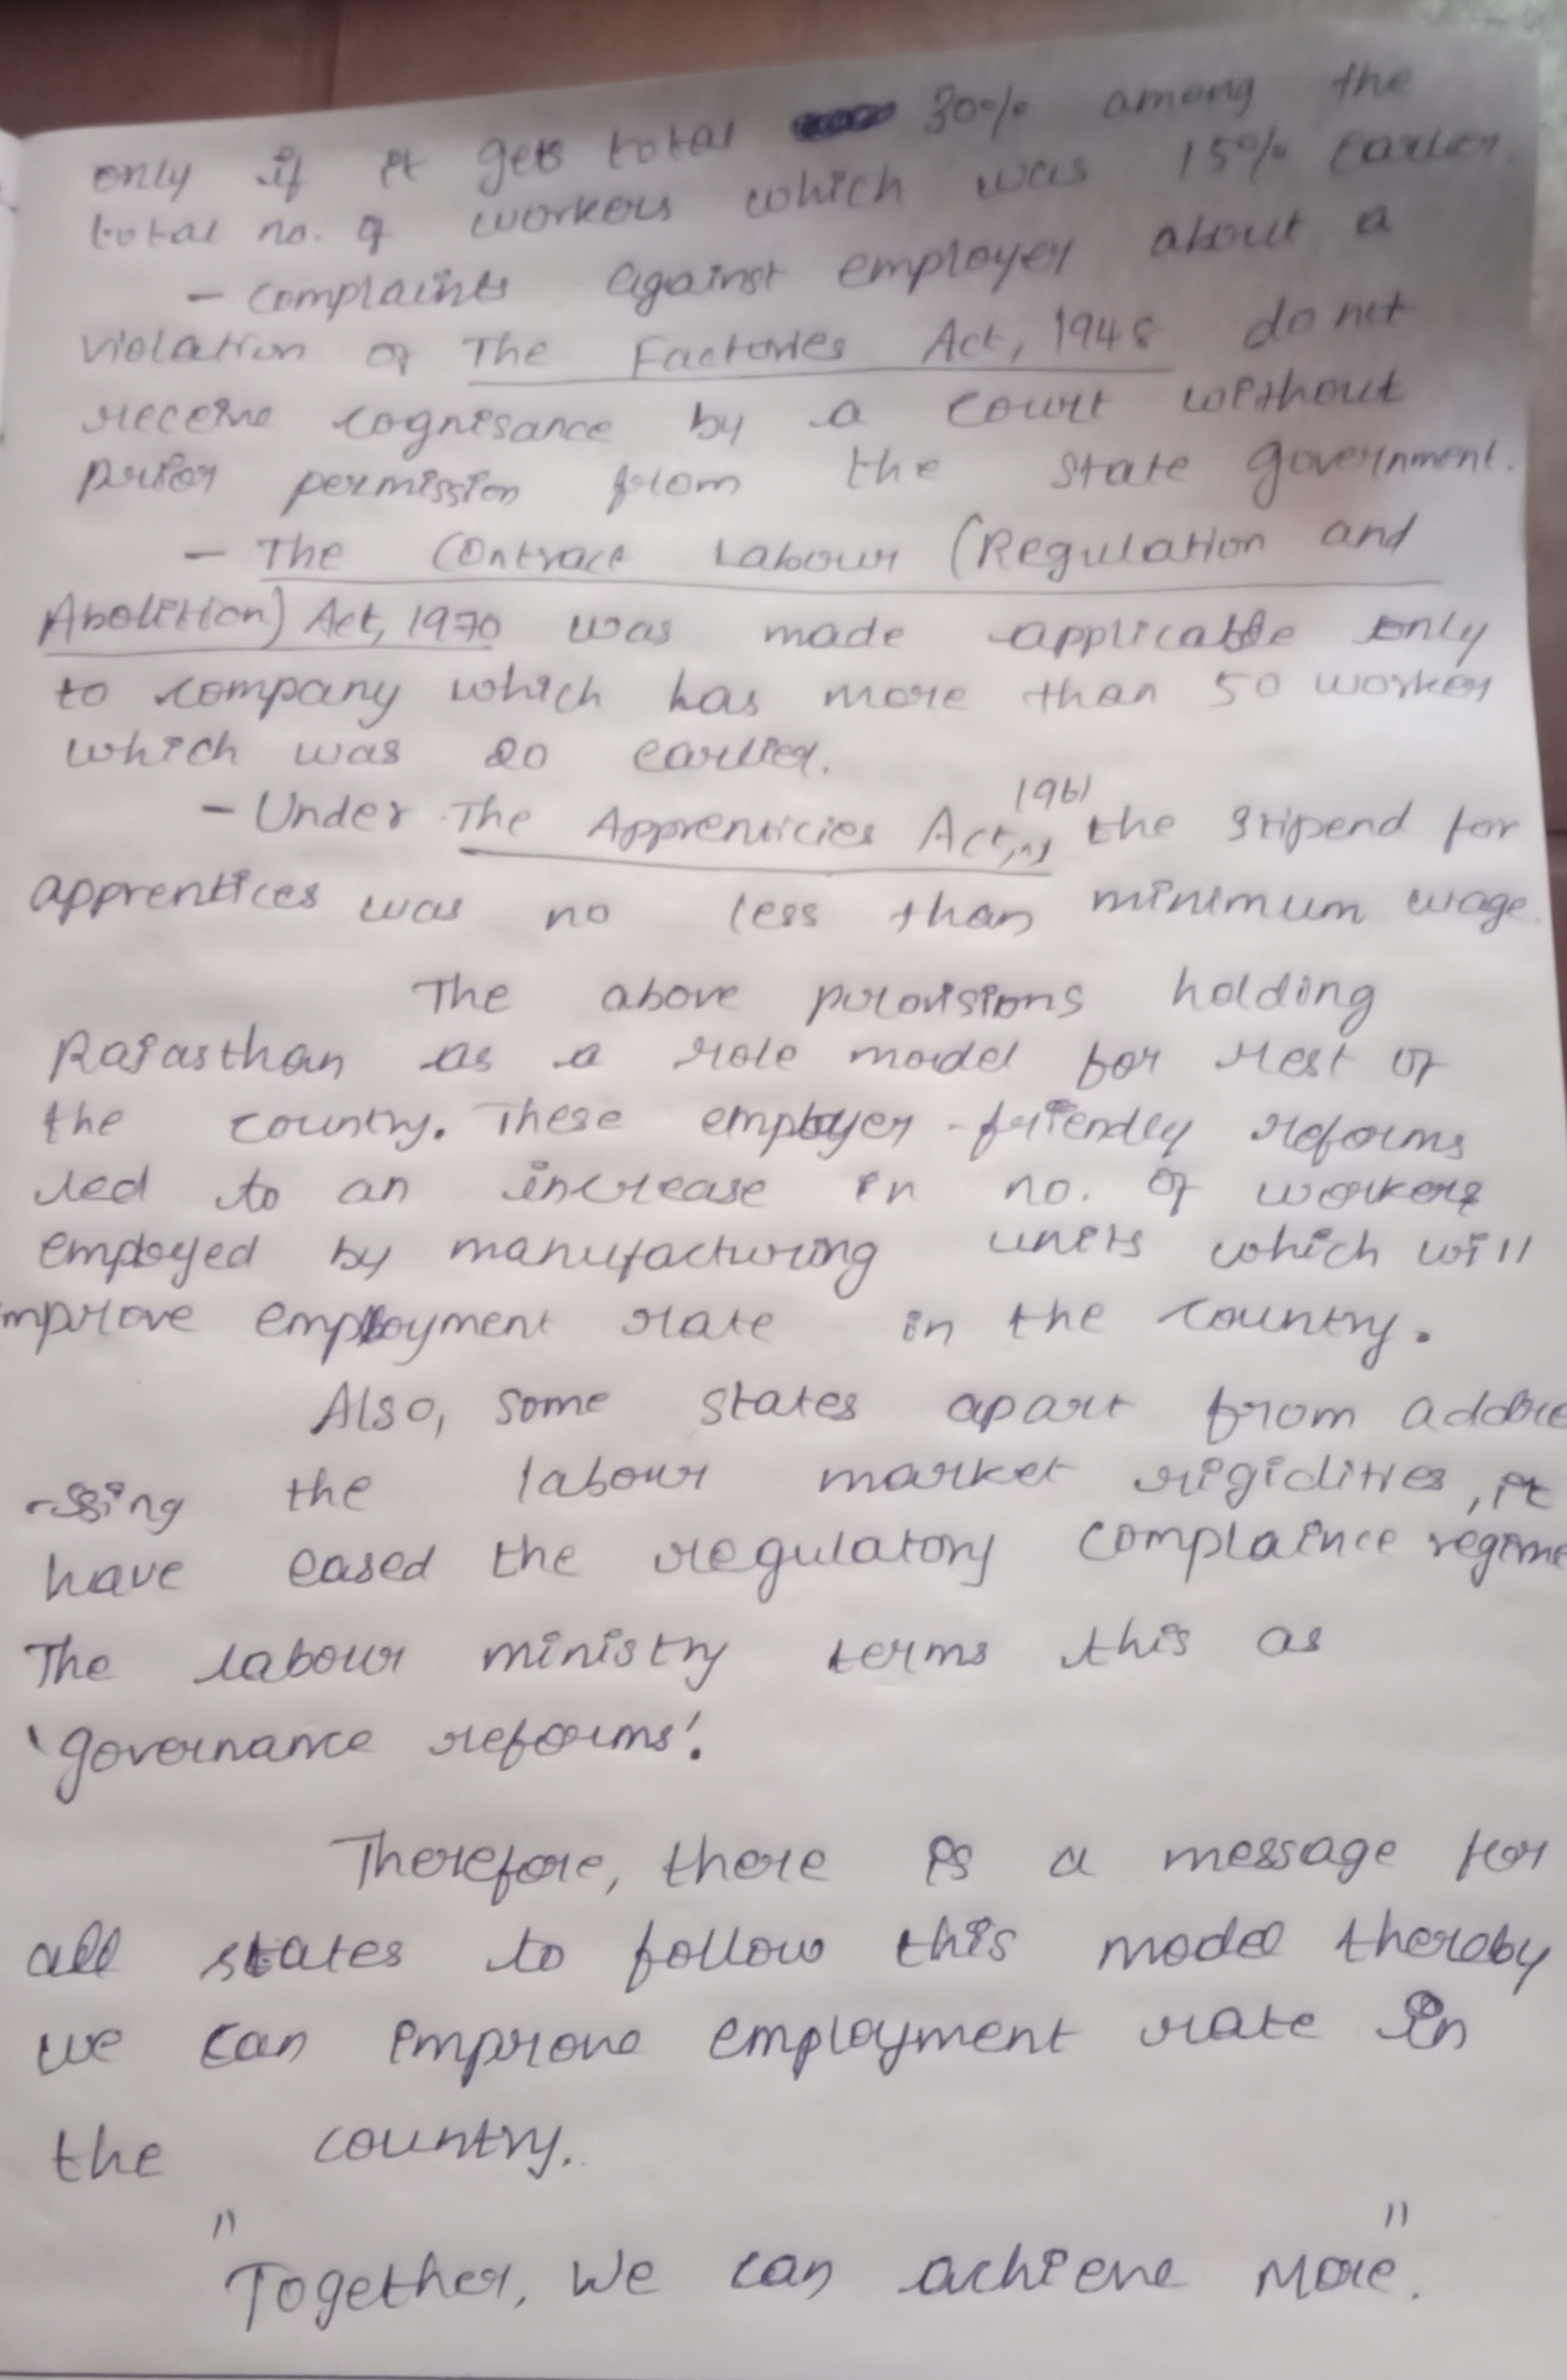 only if it gets total 30% among the
total no. of workers which was 15% earlier
- complaints against employer about a
violation of The Factories Act, 1948 do not
receive cognisance by a court without
prior permission from the state government.
- The Contract Labour (Regulation and
Abolition) Act, 1970 was made applicable only
to company which has more than 50 worker
which was 20 earlier.
- Under The Apprenticies Act, 1961 the stipend for
apprentices was no less than minimum wage.
The above provisions holding
Rajasthan as a role model for rest of
the country. These employer-friendly reforms
led to an increase in no. of workers
employed by manufacturing units which will
improve employment rate in the country.
Also, some states apart from addre
-ssing the labour market rigidities, it
have eased the regulatory complaince regime
The labour ministry terms this as
'governance reforms'.
Therefore, there is a message for
all states to follow this model thereby
we can improve employment rate in
the country.
"Together, We can achieve More".